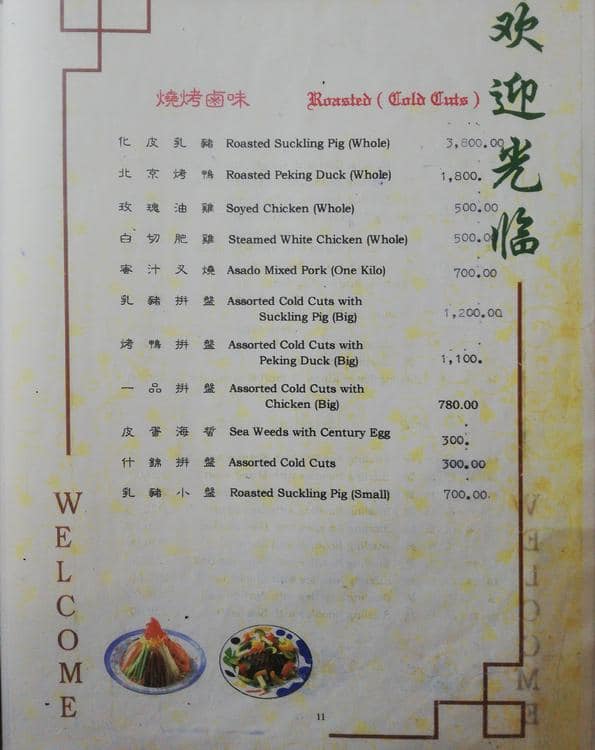 欢迎光临
燒烤鹵味 Roasted ( Cold Cuts )
化皮乳豬 Roasted Suckling Pig (Whole) 3,800.00
北京烤鴨 Roasted Peking Duck (Whole) 1,800.
玫瑰油雞 Soyed Chicken (Whole) 500.00
白切肥雞 Steamed White Chicken (Whole) 500.00
蜜汁叉燒 Asado Mixed Pork (One Kilo) 700.00
乳豬拼盤 Assorted Cold Cuts with
Suckling Pig (Big) 1,200.00
烤鴨拼盤 Assorted Cold Cuts with
Peking Duck (Big) 1,100.
一品拼盤 Assorted Cold Cuts with
Chicken (Big) 780.00
皮蛋海蜇 Sea Weeds with Century Egg 300.
什錦拼盤 Assorted Cold Cuts 300.00
乳豬小盤 Roasted Suckling Pig (Small) 700.00
WELCOME
11